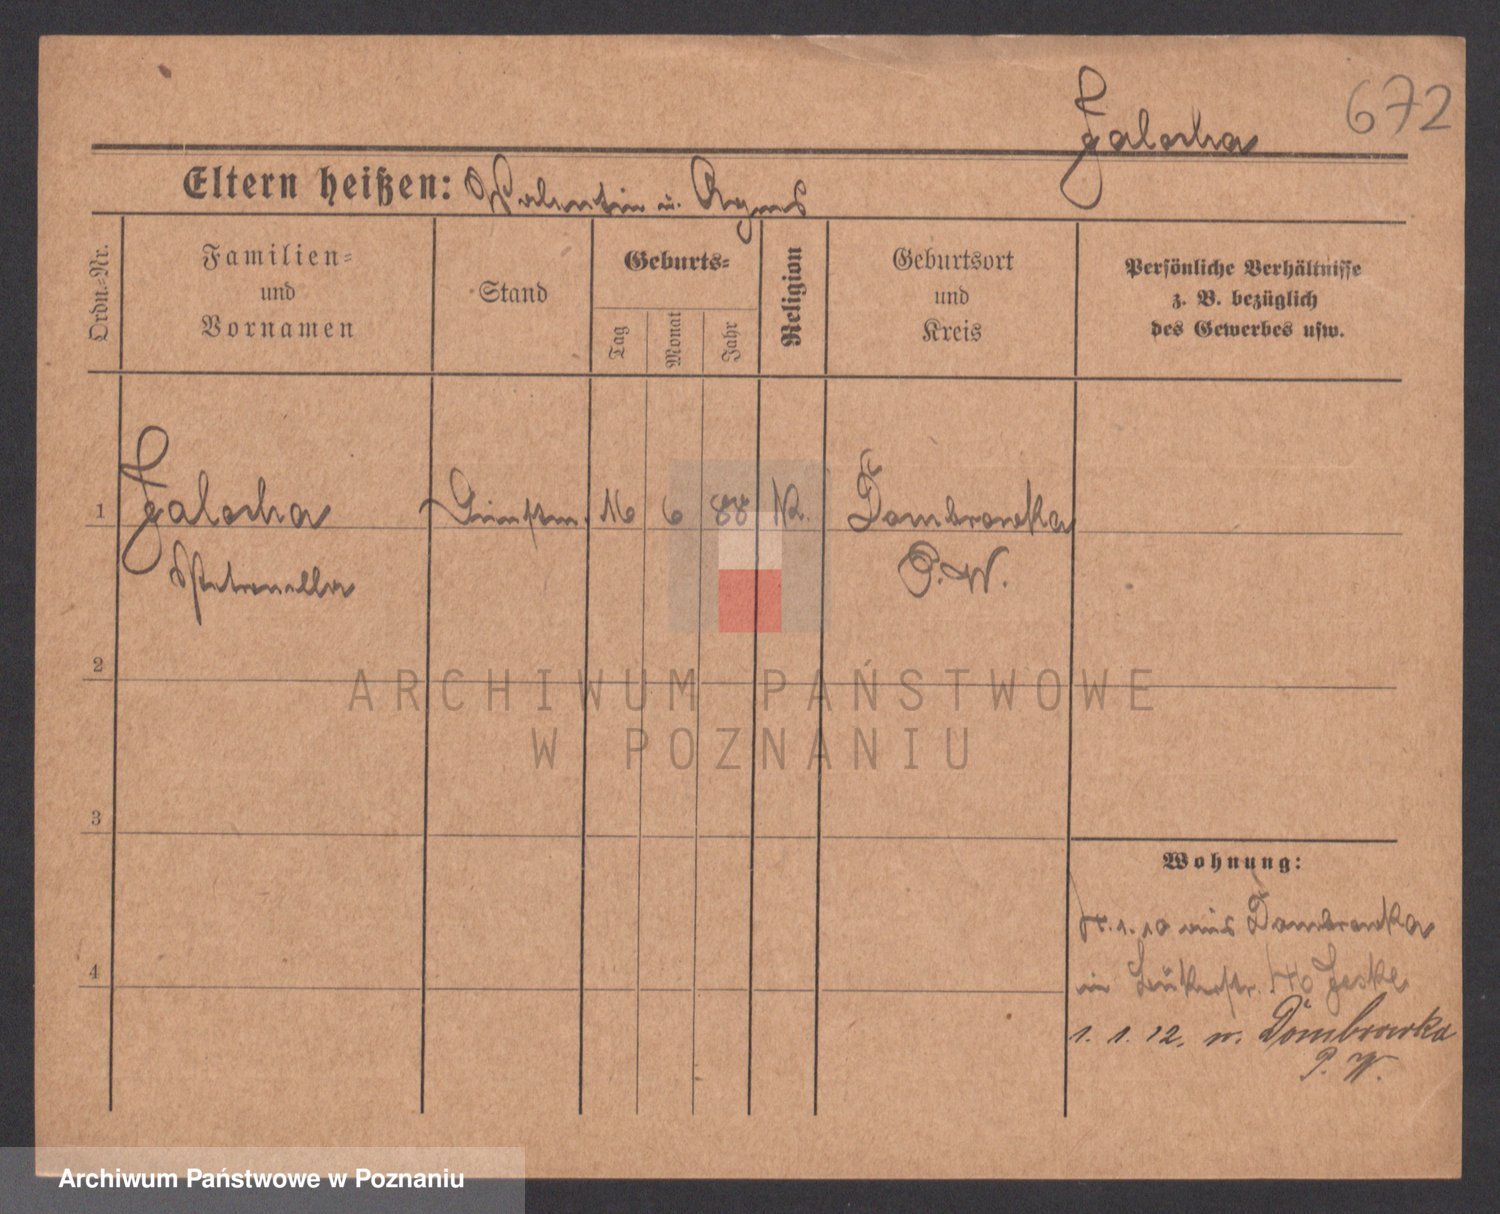 Jalocha
672
Eltern heißen: Valentin u. Agnes
Ordn.-Nr.
Familien-
und
Vornamen
Stand
Geburts-
Tag
Monat
Jahr
Religion
Geburtsort
und
Kreis
Persönliche Verhältnisse
z. B. bezüglich
des Gewerbes usw.
1 Jalocha 16 6 88 K. Dombrowka
Petronella P. W.
2
3
4
Wohnung:
4. 1. 10 aus Dombrowka
in 40 Jeske
1. 1. 12. n. Dombrowka
P. W.
ARCHIWUM PAŃSTWOWE
W POZNANIU
Archiwum Państwowe w Poznaniu